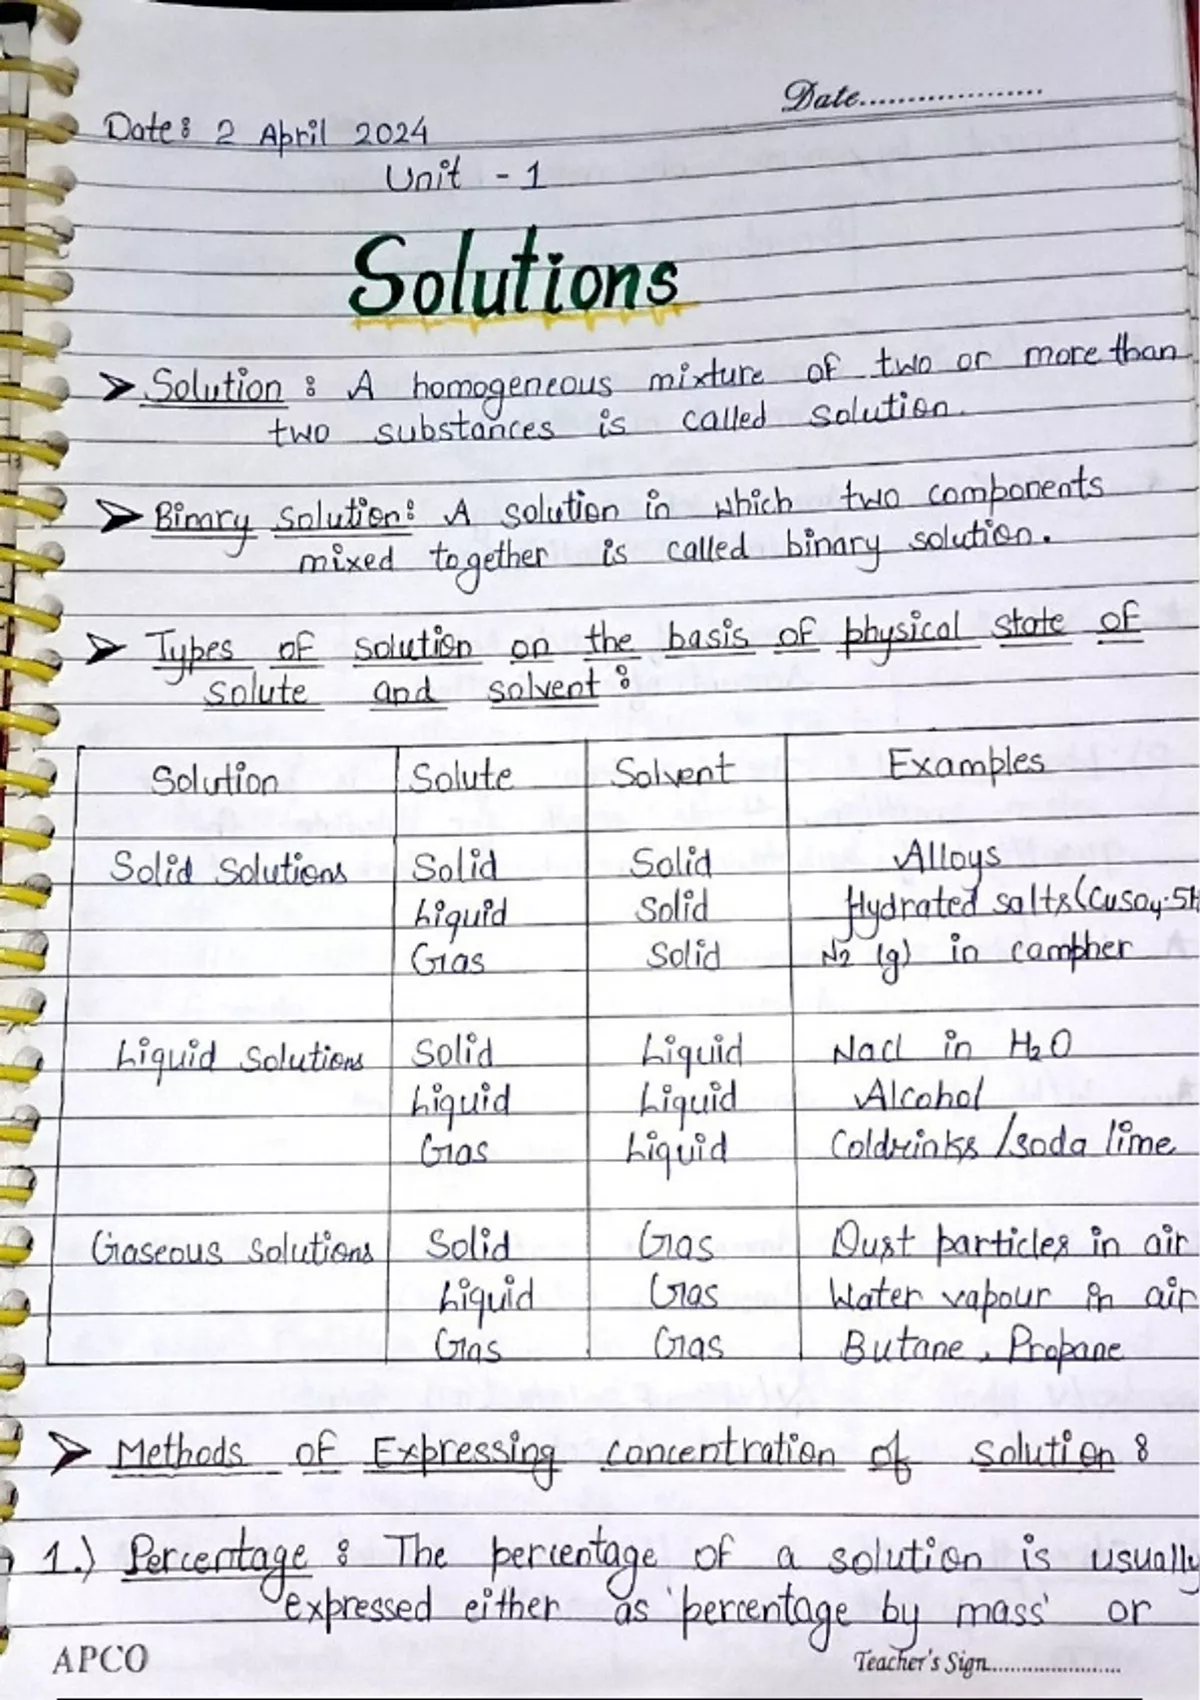 Date....................
Date: 2 April 2024
Unit - 1
Solutions
➤ Solution : A homogeneous mixture of two or more than
two substances is called solution.
➤ Binary solution: A solution in which two components
mixed together is called binary solution.
➤ Types of solution on the basis of physical state of
solute and solvent :
Solution Solute Solvent Examples
Solid Solutions Solid Solid Alloys
Liquid Solid Hydrated salts (CuSO4·5H
Gas Solid N2 (g) in campher
Liquid Solutions Solid Liquid Nacl in H2O
Liquid Liquid Alcohol
Gas Liquid Coldrinks /soda lime
Gaseous solutions Solid Gas Dust particles in air
Liquid Gas Water vapour in air
Gas Gas Butane, Propane
➤ Methods of Expressing concentration of solution :
1.) Percentage : The percentage of a solution is usually
expressed either as 'percentage by mass' or
APCO Teacher's Sign......................